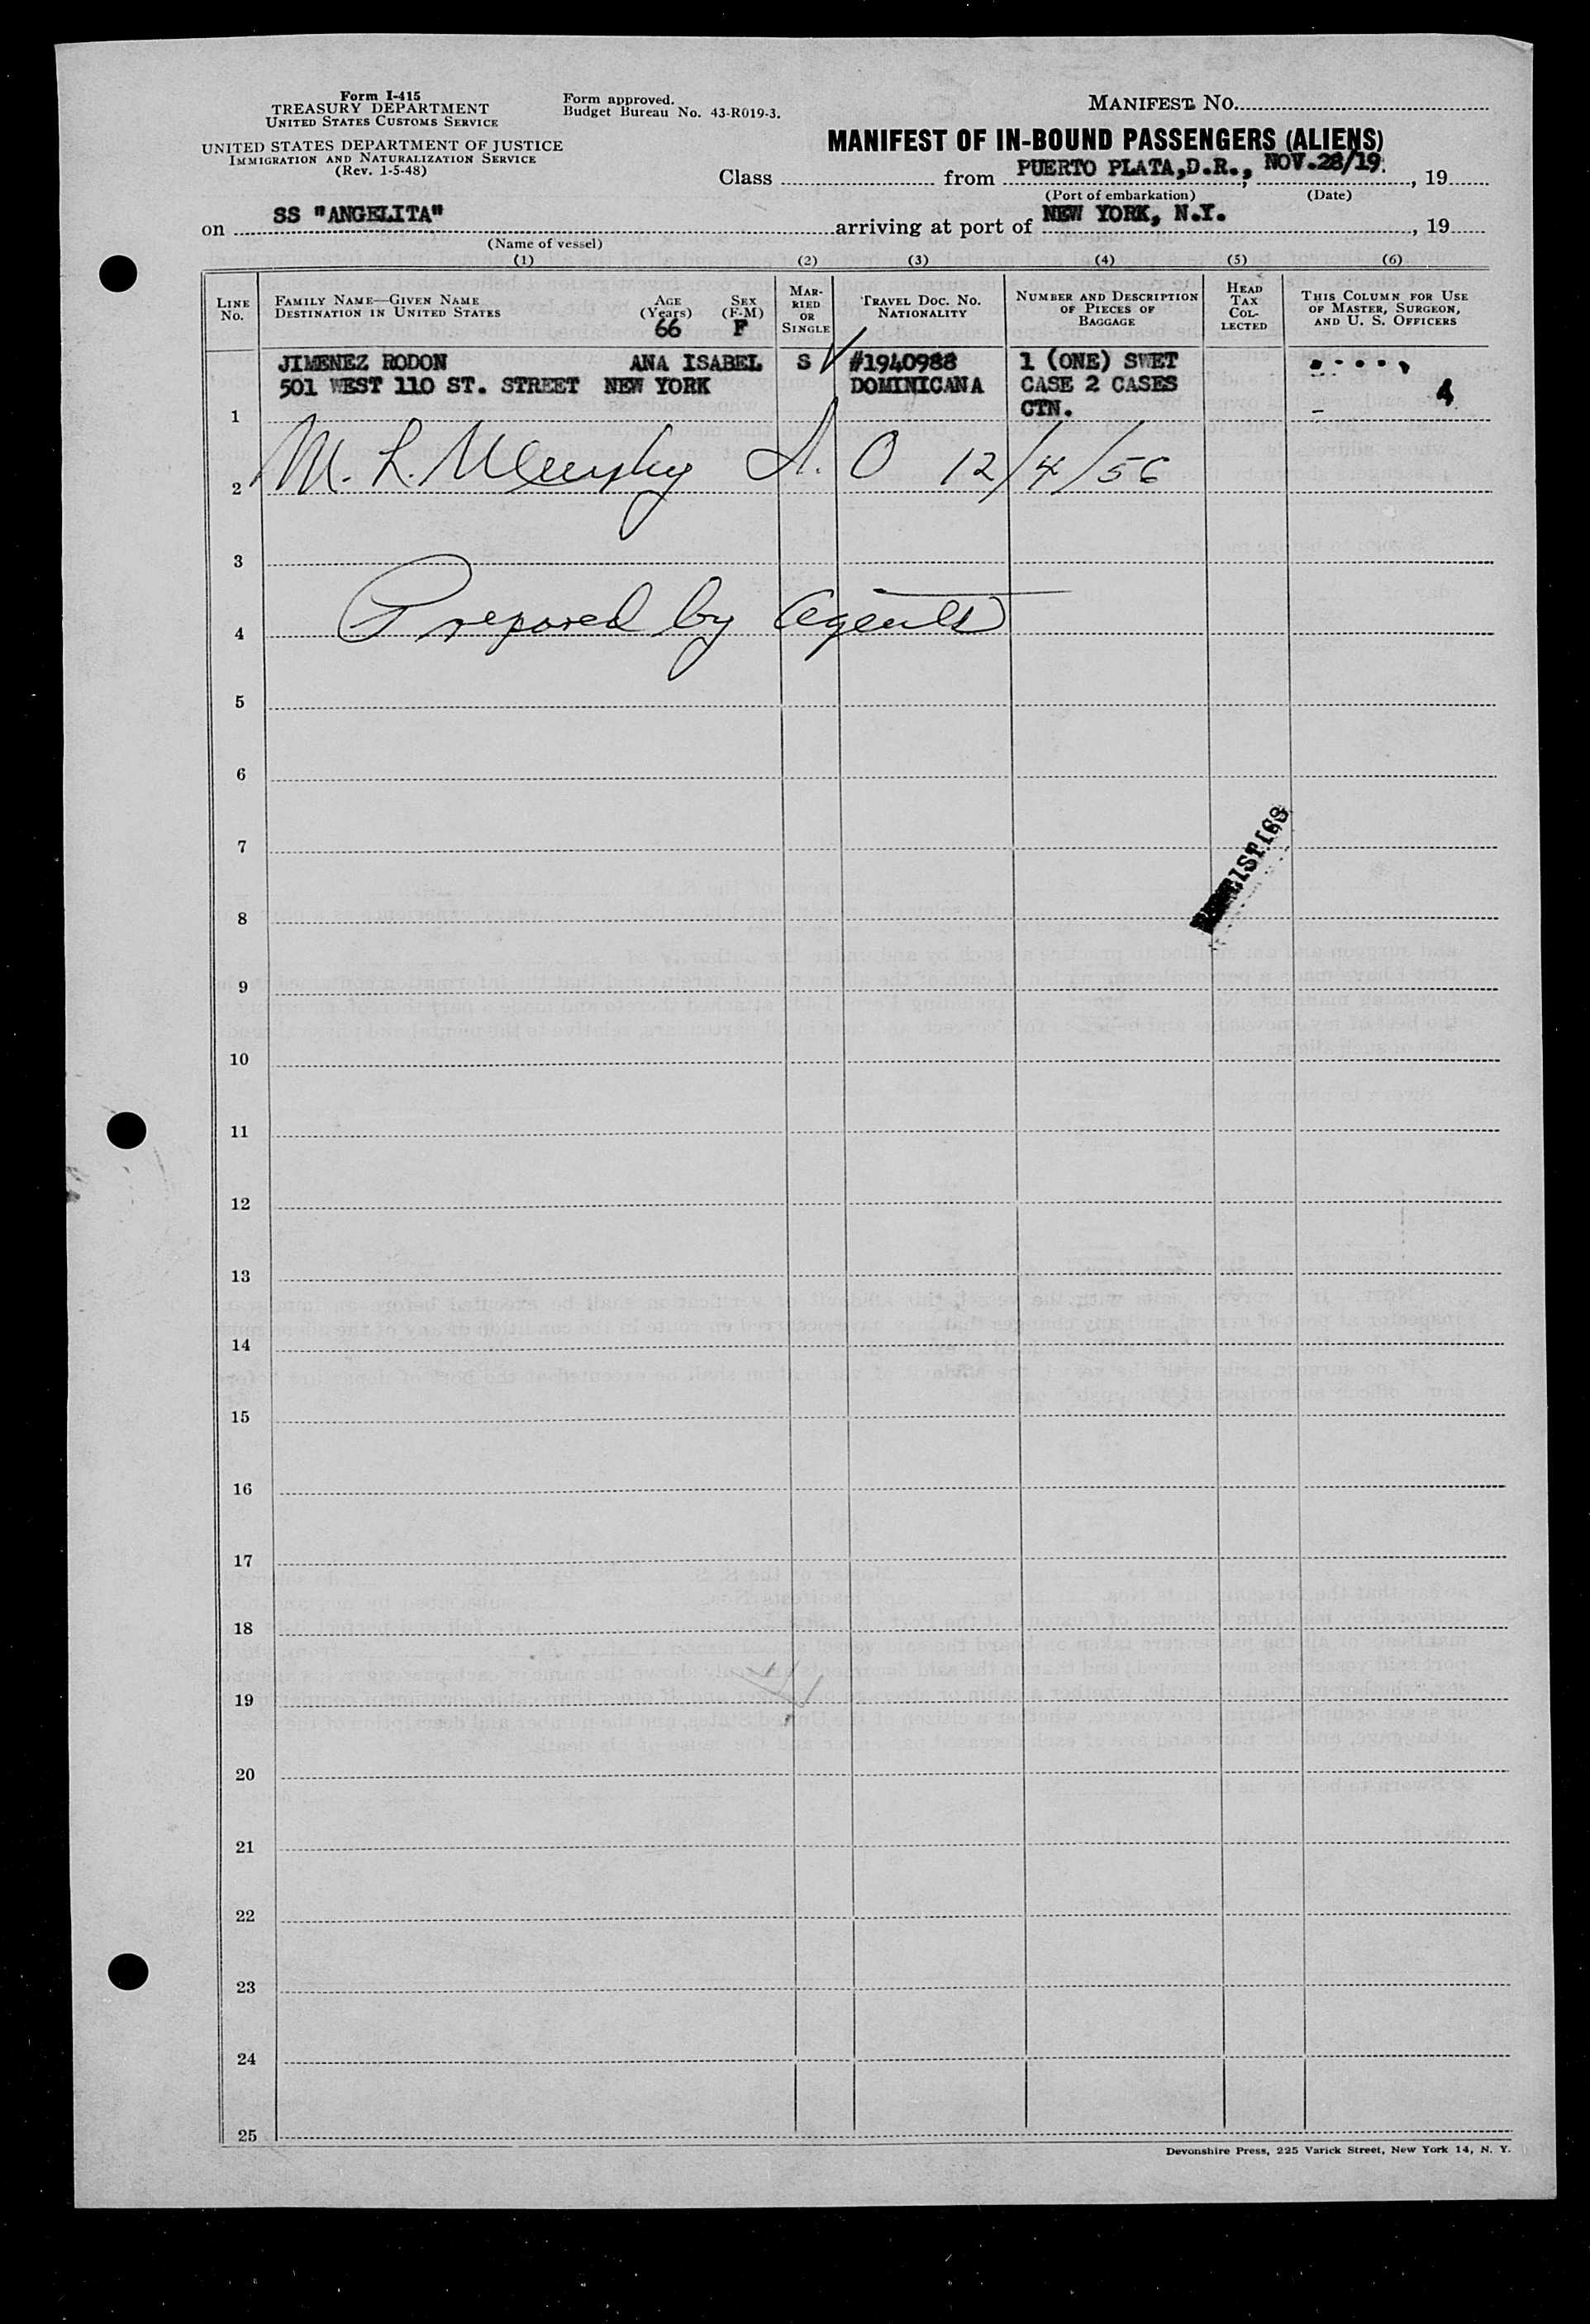 Form I-415
TREASURY DEPARTMENT
UNITED STATES CUSTOMS SERVICE
UNITED STATES DEPARTMENT OF JUSTICE
IMMIGRATION AND NATURALIZATION SERVICE
(Rev. 1-5-48)
Form approved.
Budget Bureau No. 43-R019-3.
MANIFEST No.
MANIFEST OF IN-BOUND PASSENGERS (ALIENS)
Class from PUERTO PLATA,D.R., NOV.28/19. , 19
(Port of embarkation) (Date)
on SS "ANGELITA" arriving at port of NEW YORK, N.Y. , 19
(Name of vessel)
(1) (2) (3) (4) (5) (6)
LINE No.
FAMILY NAME—GIVEN NAME
DESTINATION IN UNITED STATES
AGE (Years)
SEX (F-M)
MARRIED OR SINGLE
TRAVEL DOC. NO. NATIONALITY
NUMBER AND DESCRIPTION OF PIECES OF BAGGAGE
HEAD TAX COLLECTED
THIS COLUMN FOR USE OF MASTER, SURGEON, AND U. S. OFFICERS
66 F
JIMENEZ RODON ANA ISABEL S #1940988 1 (ONE) SWET
501 WEST 110 ST. STREET NEW YORK DOMINICANA CASE 2 CASES 4
1 CTN.
2 M. L. Murphy 12/4/56
3
4 Prepared by Agents
5
6
7
8
9
10
11
12
13
14
15
16
17
18
19
20
21
22
23
24
25
Devonshire Press, 225 Varick Street, New York 14, N. Y.